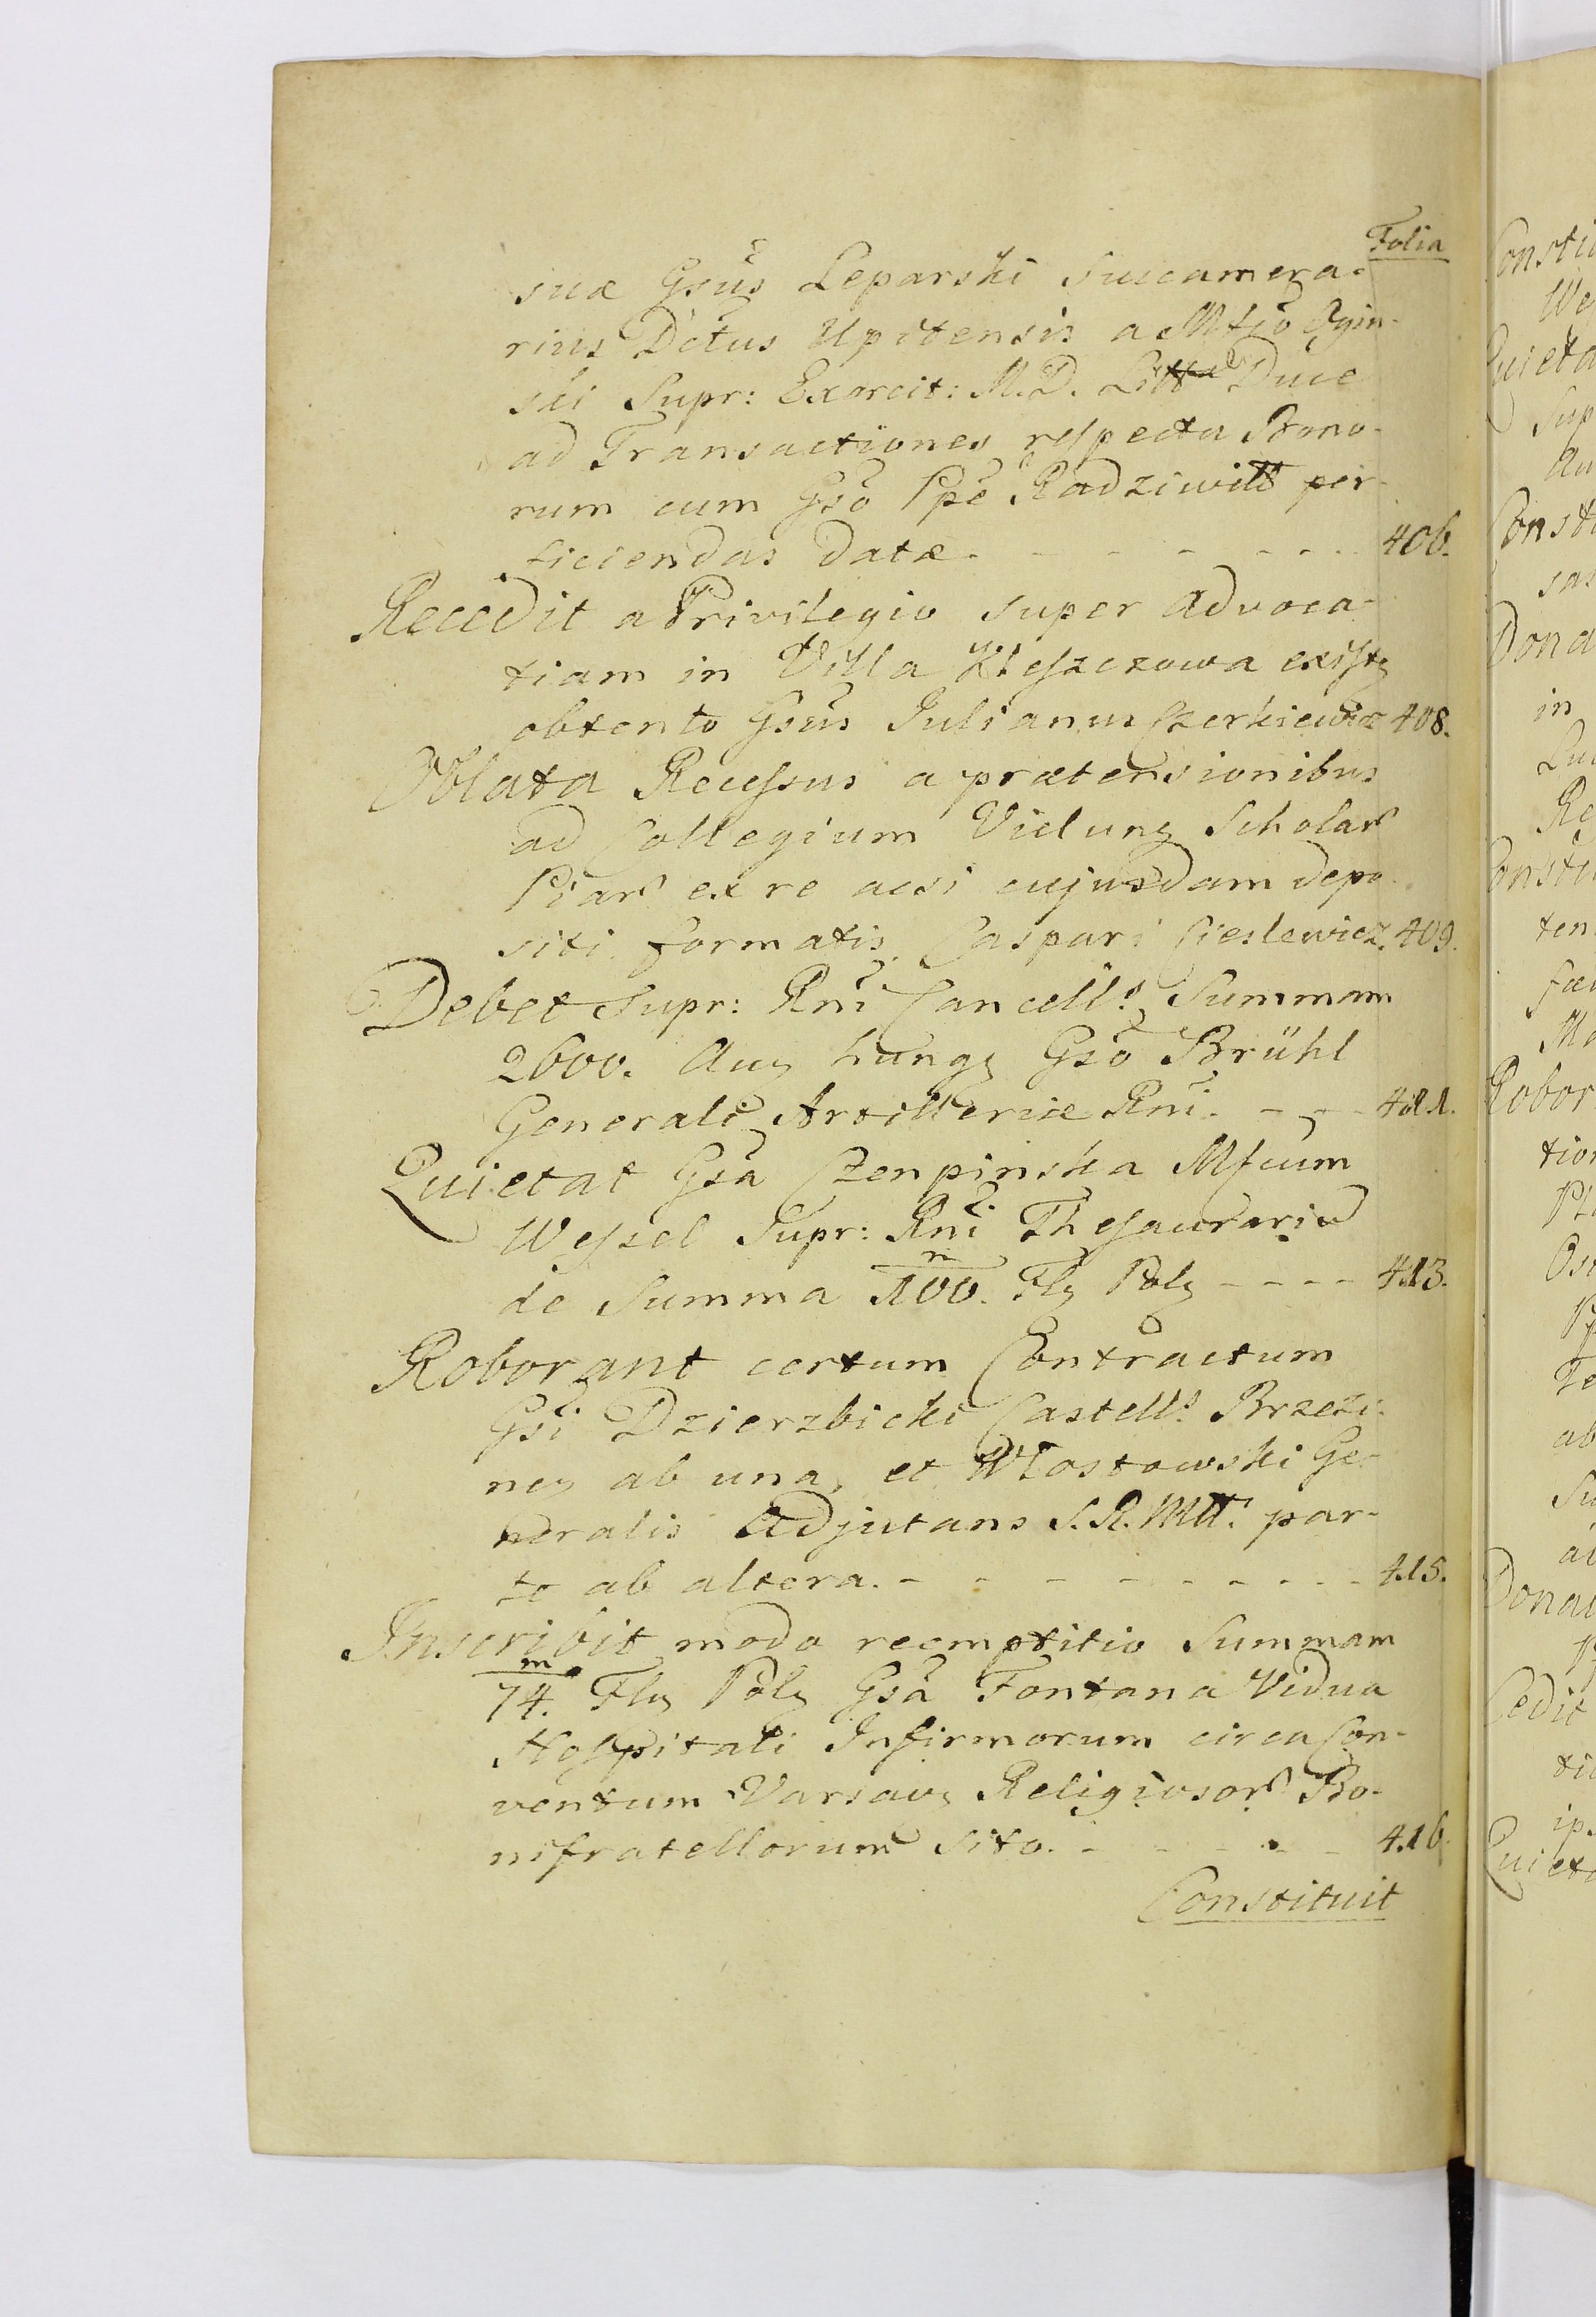 Folia
suæ Gsus Leparski Succamera-
rius Dctus Upitensis a Mfco Ogin-
ski Supr: Exercit: M.D. Litt. Duce
ad Transactiones respectu Bono-
rum cum Gso Ppe Radziwiłł per-
ficiendas datæ. - - - - - - 406.
Recedit a Privilegio super Advoca-
tiam in Villa Kleszczowa existn
obtento Gsus Julianus Czerkiewicz 408.
Oblata Recessus a prætensionibus
ad Collegium Vielung Scholar
Piar ex re acsi cujusdam depo-
siti formatis. Caspari Cieslewicz. 409.
Debet Supr: Rni Cancells Summam
2600. Aug hung Gso Brühl
Generali Artilleriæ Rni. - - - 411.
Quietat Gsa Czenpinska Mfcum
Wessel Supr: Rni Thesaurarium
de Summa m/100. Flg Polg - - - - 413.
Roborant certum Contractum
Gsi Dzierzbicki Castells Brzezi-
neg ab una, et Włostowski Ge-
neralis Adjutans S.R.Mtt. par-
te ab altera. - - - - - - - 415.
Inscribit modo reemptitio Summam
m/74. Flg Polg Gsa Fontana Vidua
Hospitali Infirmorum circa Con-
ventum Varsavg Religiosor Bo-
nifratellorum sito. - - - - - 416.
Constituit